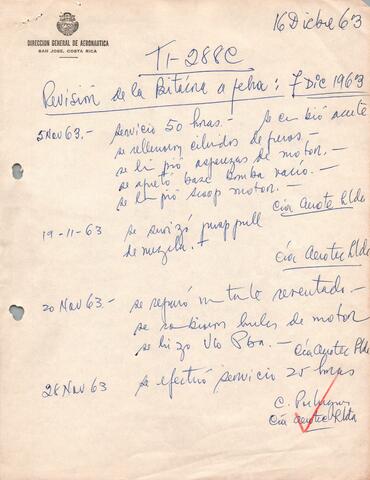 16 Dicbre 63
DIRECCION GENERAL DE AERONAUTICA
SAN JOSE, COSTA RICA
TI-288C
Revisión de la Bitácora a fecha: 7 Dic 1963
5 Nov 63.- servicio 50 horas.- Se cambió aceite
se rellenaron cilindros de frenos.-
se limpió asperezas de motor.-
se apretó base bomba vacío.-
se limpió scoop motor.-
Cía Aerotec Ltda
19-11-63 se suavizó push pull
de mezcla.-
Cía Aerotec Ltda
20 Nov 63.- se reparó un tubo reventado.-
se cambiaron hules de motor
se hizo Vlo Pba.- Cía Aerotec Ltda
28 Nov 63 se efectuó servicio 25 horas
C.
Cía Aerotec Ltda